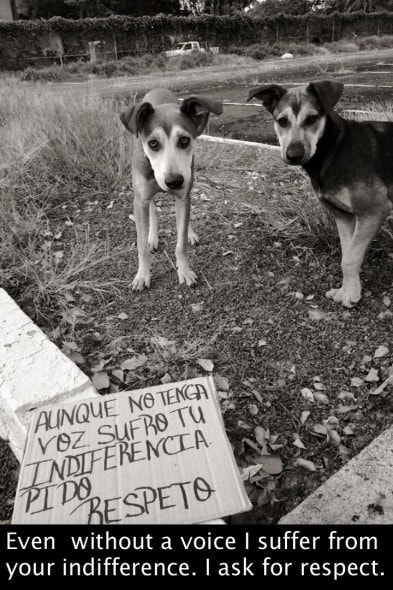 AUNQUE NO TENGA
VOZ SUFRO TU
INDIFERENCIA.
PIDO
RESPETO
Even without a voice I suffer from
your indifference. I ask for respect.